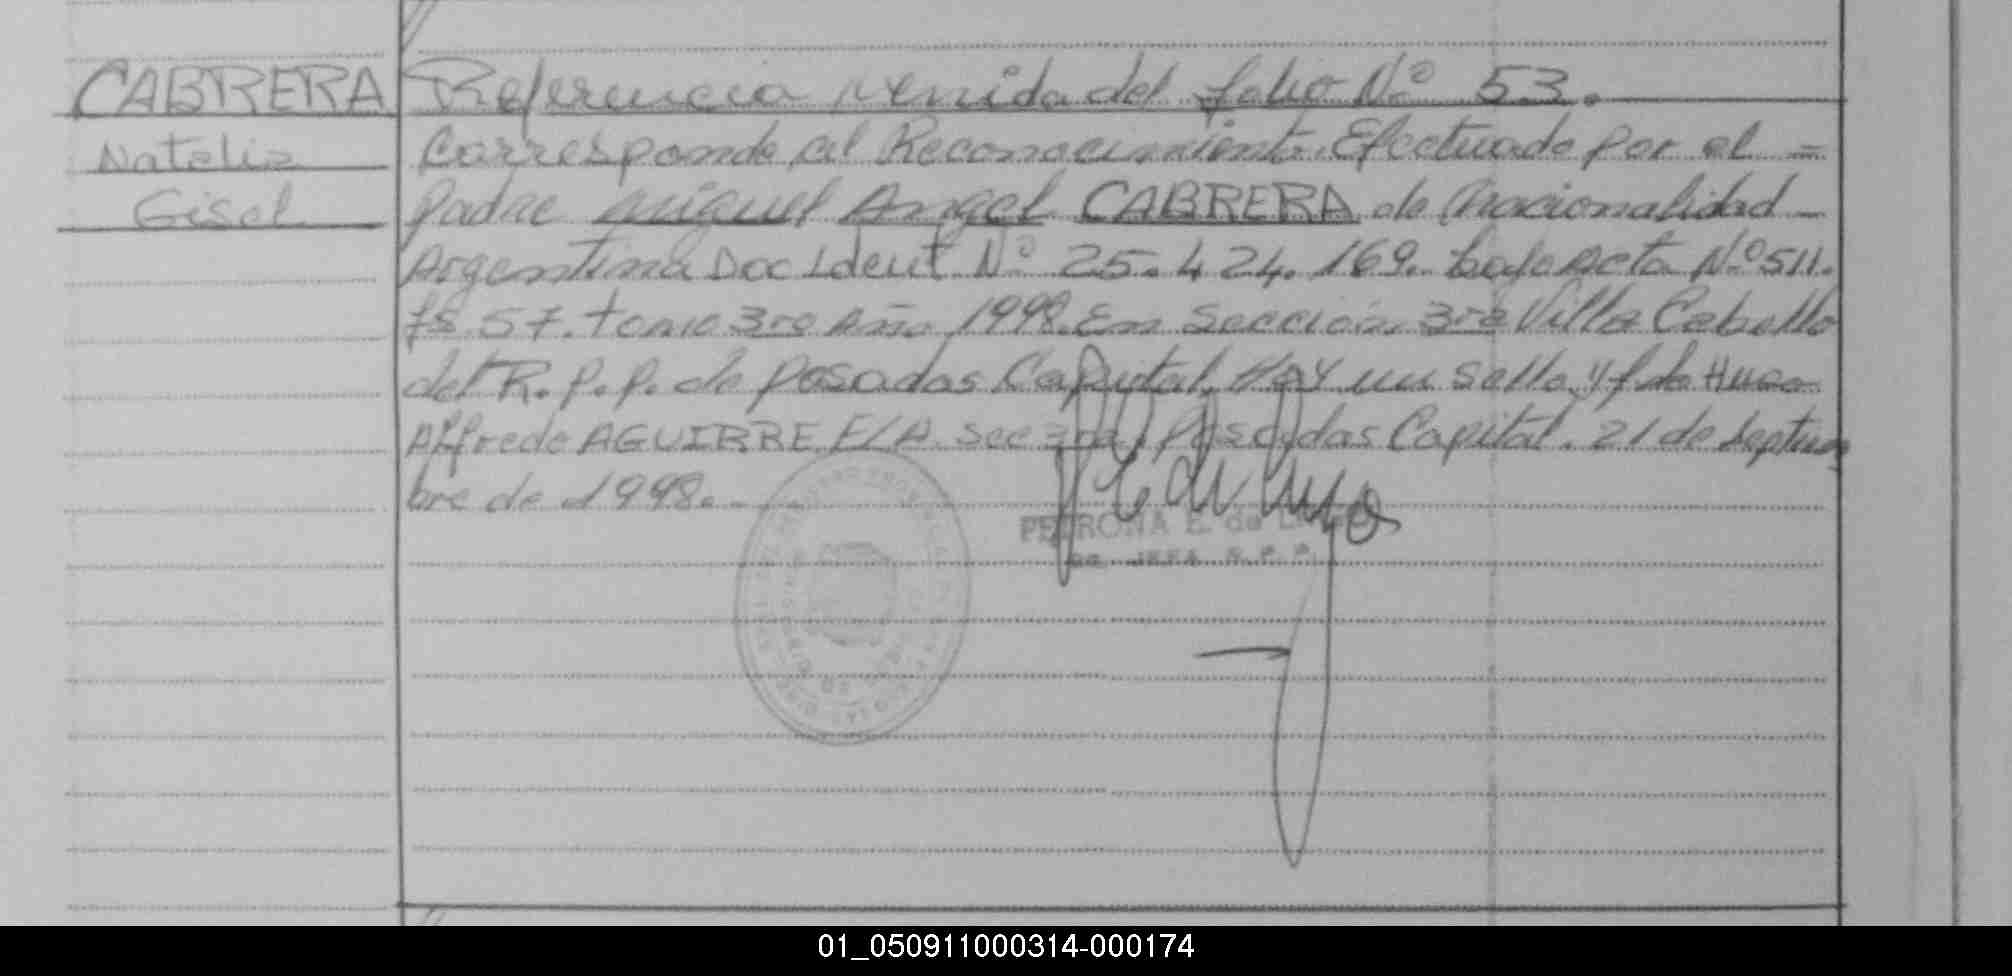 CABRERA
Natalia
Gisel
Referencia venida del folio Nº 53.
Corresponde al Reconocimiento Efectuado por el =
padre Miguel Angel CABRERA de Nacionalidad -
Argentina Doc Ident Nº 25.424.169. bajo Acta Nº 511.
fs 57. tomo 3ro Año 1998. Em Sección 3ra Villa Cabello
del R.P.P. de Posadas Capital. Hay un sello y f. de Hugo
Alfredo AGUIRRE F/A Sec 3ra, Posadas Capital. 21 de Septiem
bre de 1998. -
PETRONA E. de
JEFA R.P.P.
01_050911000314-000174